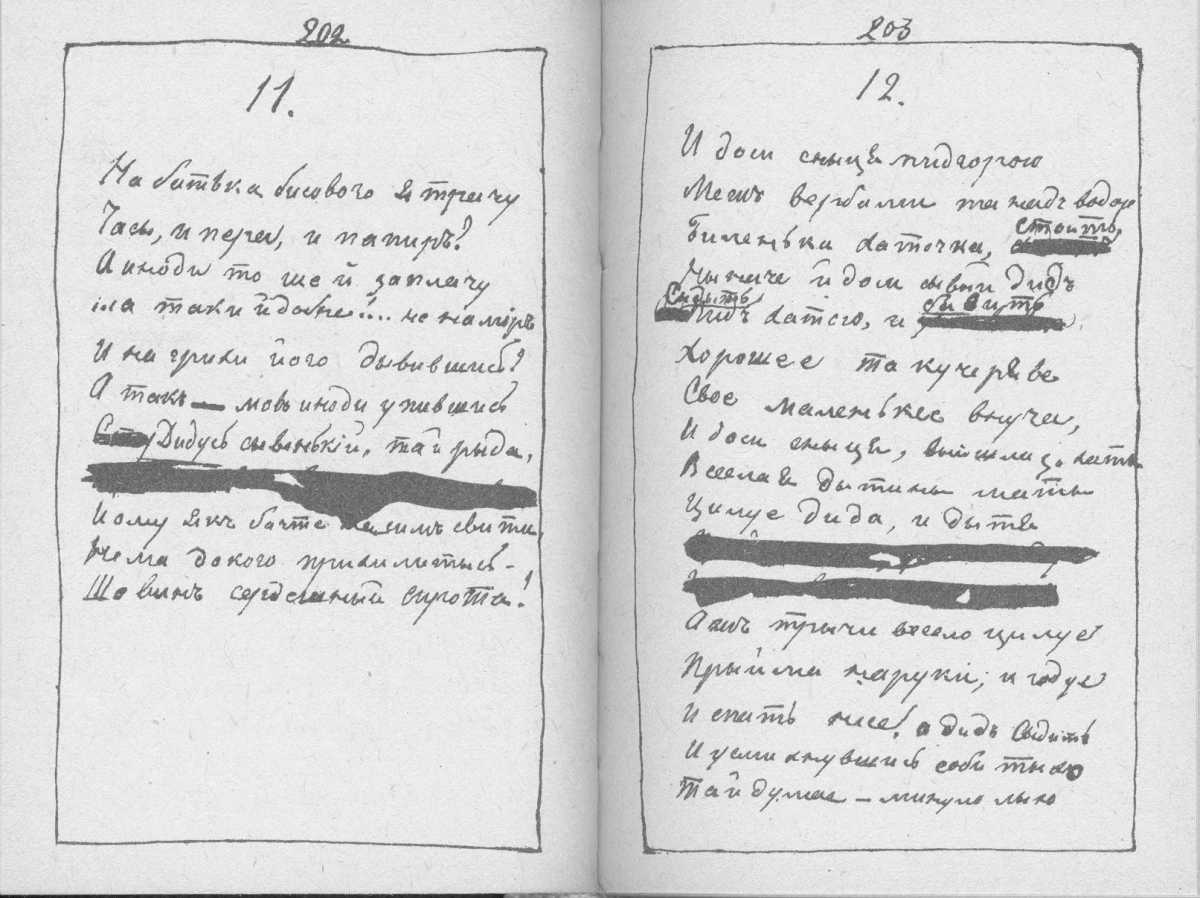 202
11.
На батька бисового я трачу
Часы, и пера, и папиръ?
А иноди то ще й заплачу
таки й добре.... не на миръ
И на грихи його дывившись?
А такъ мовъ иноди упившись
Дидусь сывенькій, тай рыда,
Йому якъ бачте симъ свити,
Нема докого прихилитысь
Що винъ сердешный сирота!
203
12.
И доси сныця пидгорою
Межъ вербами та надъ водою
Биленька хаточка,
Стоитъ,
Мы наче й доси сывый дидъ
Сидытъ
бавитъ
хатою, и
Хорошее та кучеряве
Свое маленькее внуча,
И доси сныця, выйшла з хаты
Веселая дытыны маты
Цилуе дида, и дытя
Ажъ трычи весело цилує
Прыйма наруки, и годуе
И спать несе, а дидъ сыдитъ
И усмихнувшись соби тыхо
Тай думае – минуло лыхо